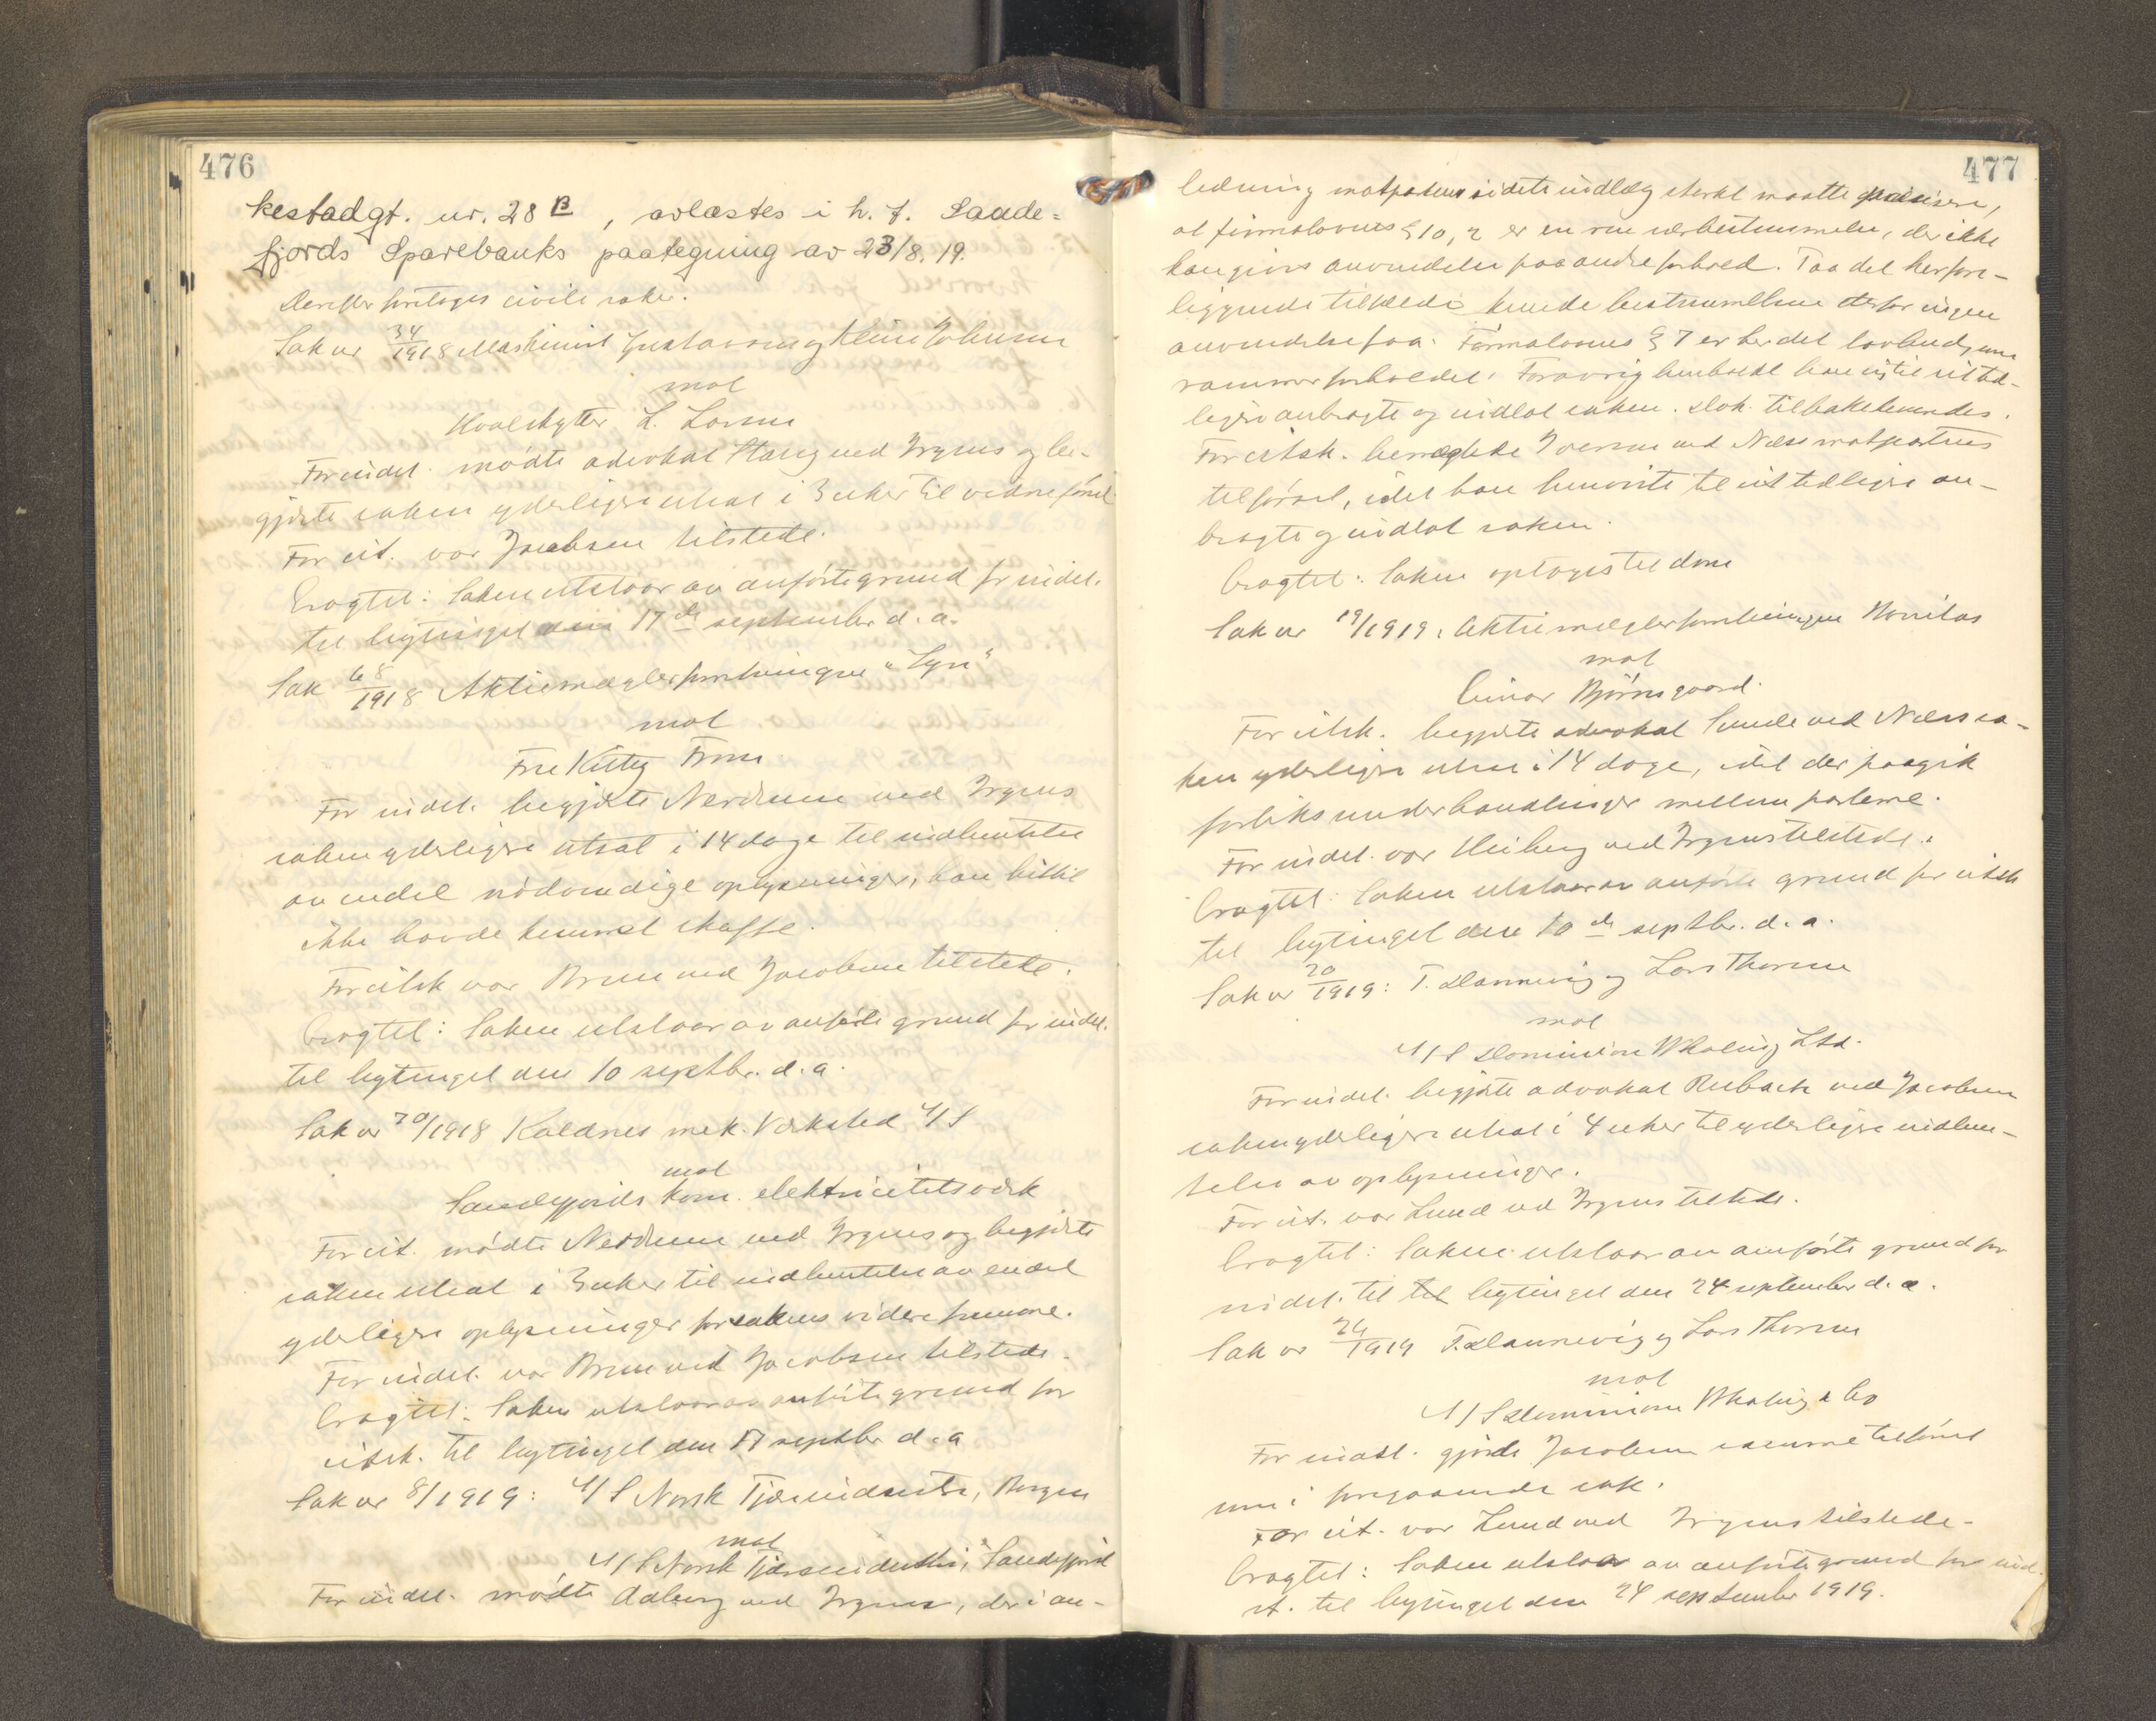 476
kestadgt. nr. 28 B, avlæstes i h. t. Sande=
fjords Sparebanks paategning av 23/8. 19.
Derefter foretoges civile saker.
Sak nr 34/1918 Maskinist Gustavsen og Johnsen
mot
Hvalskytter L. Larsen
For indst. mødte advokat Haug ved Irgens og be-
gjærte saken yderligere utsat i 3 uker til vidneførsel
For cit. var Jacobsen tilstede.
Eragtet: Saken utstaar av anførte grund for indst.
til bytinget den 17de september d. a.
Sak 68/1918 Aktiemæglerforretningen "Lyn"
mot
Fru Kitty
For indst. begjærte Nerdrum ved Irgens
saken yderligere utsat i 14 dage til indhentelse
av endel nødvendige oplysninger, han hittil
ikke havde kunnet skaffe.
For citsk var Bruun ved Jacobsen tilstede.
Eragtet: Saken utstaar av anførte grund for indst.
til bytinget den 10 septbr. d. a.
Sak nr 70/1918 Kaldnes mek. Værksted A/S
mot
Sandefjords kom. elektricitetsværk
For cit. mødte Nerdrum ved Irgens og begjærte
saken utsat i 3 uker til indhentelse av endel
yderligere oplysninger for sakens videre fremme.
For indst. var Bruun ved Jacobsen tilstede.
Eragtet: Saken utstaar av anførte grund for
citsk. til bytinget den 17 septbr d. a
Sak nr 8/1919: A/S Norsk Tjæreindustri, Bergen
mot
A/S Norsk Tjæreindustri, Sandefjord
For indst. mødte Aaberg ved Irgens, der i an-
477
ledning motpartens sidste indlæg sterkt maatte præcisere,
at firmalovens § 10, 2 er en ren særbestemmelse, der ikke
kan gives anvendelse paa andre forhold. Paa det herfore-
liggende tilfælde kunde bestemmelsen derfor ingen
anvendelse faa. Firmalovens § 7 er her det lovbud, som
rammer forholdet. Forøvrig henholdt han sig til sit tid-
ligere anbragte og indlot saken. Dok. tilbakeleveredes.
For citsk. benegtede Iversen ved Næss motpartens
tilførsel, idet han henviste til sit tidligere an-
bragte og indlot saken.
Eragtet: Saken optages til dom
Sak nr 19/1919: Aktiemæglerforretningen Novitas
mot
Einar Bjørnsgaard.
For citsk. begjærte advokat Lunde ved Næss sa-
ken yderligere utsat i 14 dage, idet der paagik
forliksunderhandlinger mellem parterne.
For indst. var Heiberg ved Irgens tilstede.
Eragtet: Saken utstaar av anførte grund for citsk
til bytinget den 10de septbr. d. a.
Sak nr 20/1919: T. Dannevig og Lars Thorsen
mot
A/S Dominion Whaling Ltd.
For indst. begjærte advokat Rusbach ved Jacobsen
saken yderligere utsat i 4 uker til yderligere indhen-
telse av oplysninger.
For cit. var Lund ved Irgens tilstede.
Eragtet: Saken utstaar av anførte grund for
indst. til til bytinget den 24 september d. a.
Sak nr 26/1919 T. Dannevig og Lars Thorsen
mot
A/S Dominion Whaling & Co
For indst. gjorde Jacobsen samme tilførsel
som i foregaaende sak.
For cit. var Lund ved Irgens tilstede.
Eragtet: Saken utstaar av anførte grund for ind-
st. til bytinget den 24 september 1919.